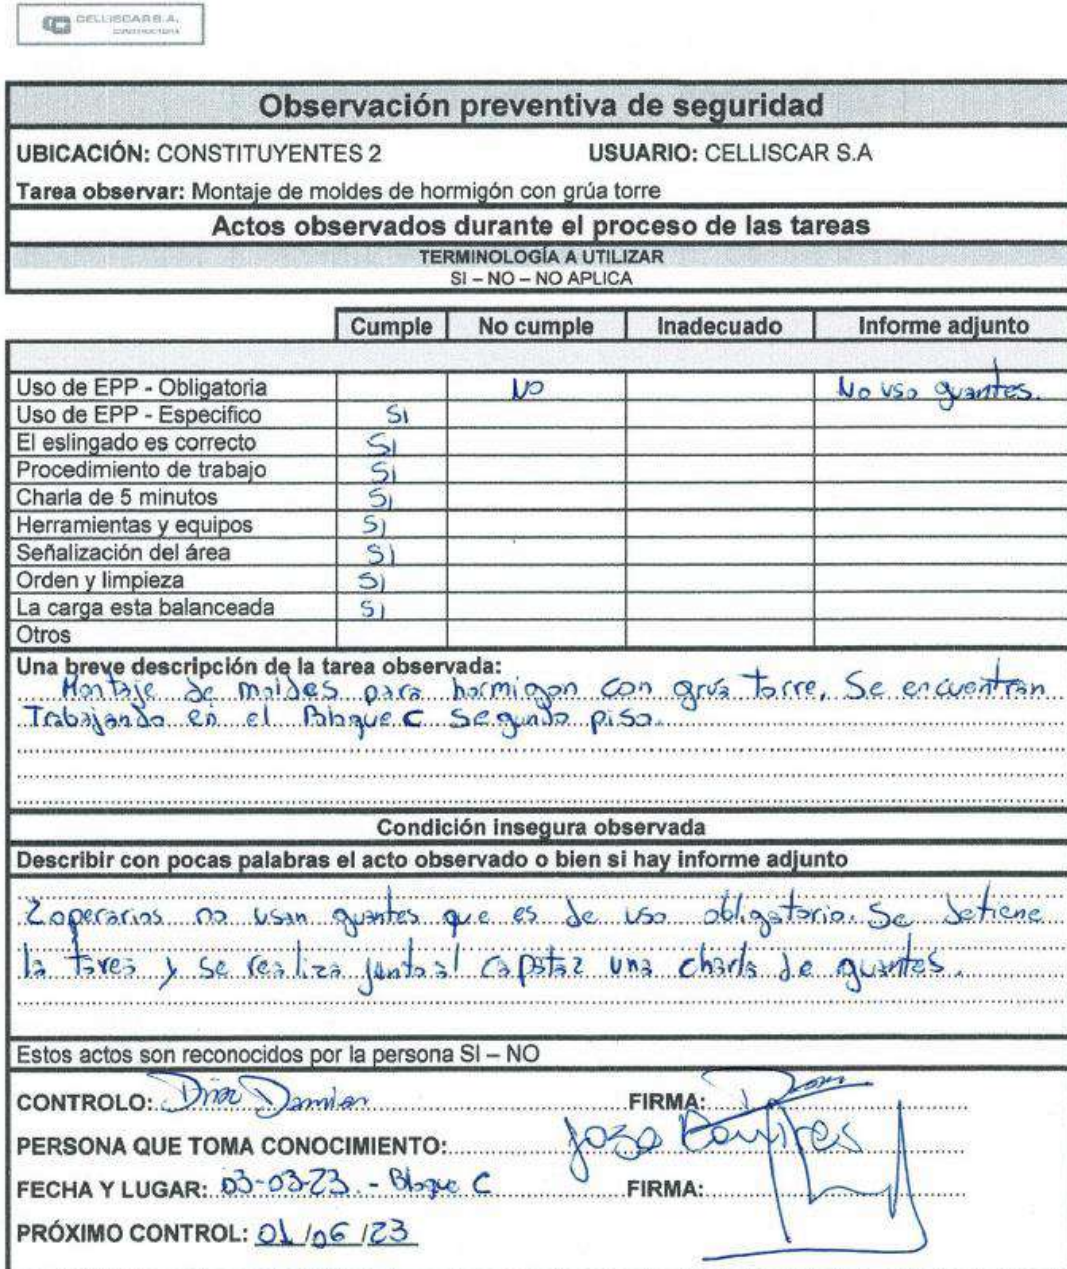 CELLISCAR S.A.
CONSTRUCTORA
Observación preventiva de seguridad
UBICACIÓN: CONSTITUYENTES 2 USUARIO: CELLISCAR S.A
Tarea observar: Montaje de moldes de hormigón con grúa torre
Actos observados durante el proceso de las tareas
TERMINOLOGÍA A UTILIZAR
SI – NO – NO APLICA
Cumple No cumple Inadecuado Informe adjunto
Uso de EPP - Obligatoria NO No uso guantes.
Uso de EPP - Especifico SI
El eslingado es correcto SI
Procedimiento de trabajo SI
Charla de 5 minutos SI
Herramientas y equipos SI
Señalización del área SI
Orden y limpieza SI
La carga esta balanceada SI
Otros
Una breve descripción de la tarea observada:
Montaje de moldes para hormigon con grúa torre, Se encuentran
Trabajando en el Bloque C Segundo piso.
Condición insegura observada
Describir con pocas palabras el acto observado o bien si hay informe adjunto
2 operarios no usan guantes que es de uso obligatorio. Se detiene
la tarea y se realiza junto al capataz una charla de guantes.
Estos actos son reconocidos por la persona SI – NO
CONTROLO: Damian FIRMA:
PERSONA QUE TOMA CONOCIMIENTO: Jose
FECHA Y LUGAR: 03-03-23. - Bloque C FIRMA:
PRÓXIMO CONTROL: 01/06/23